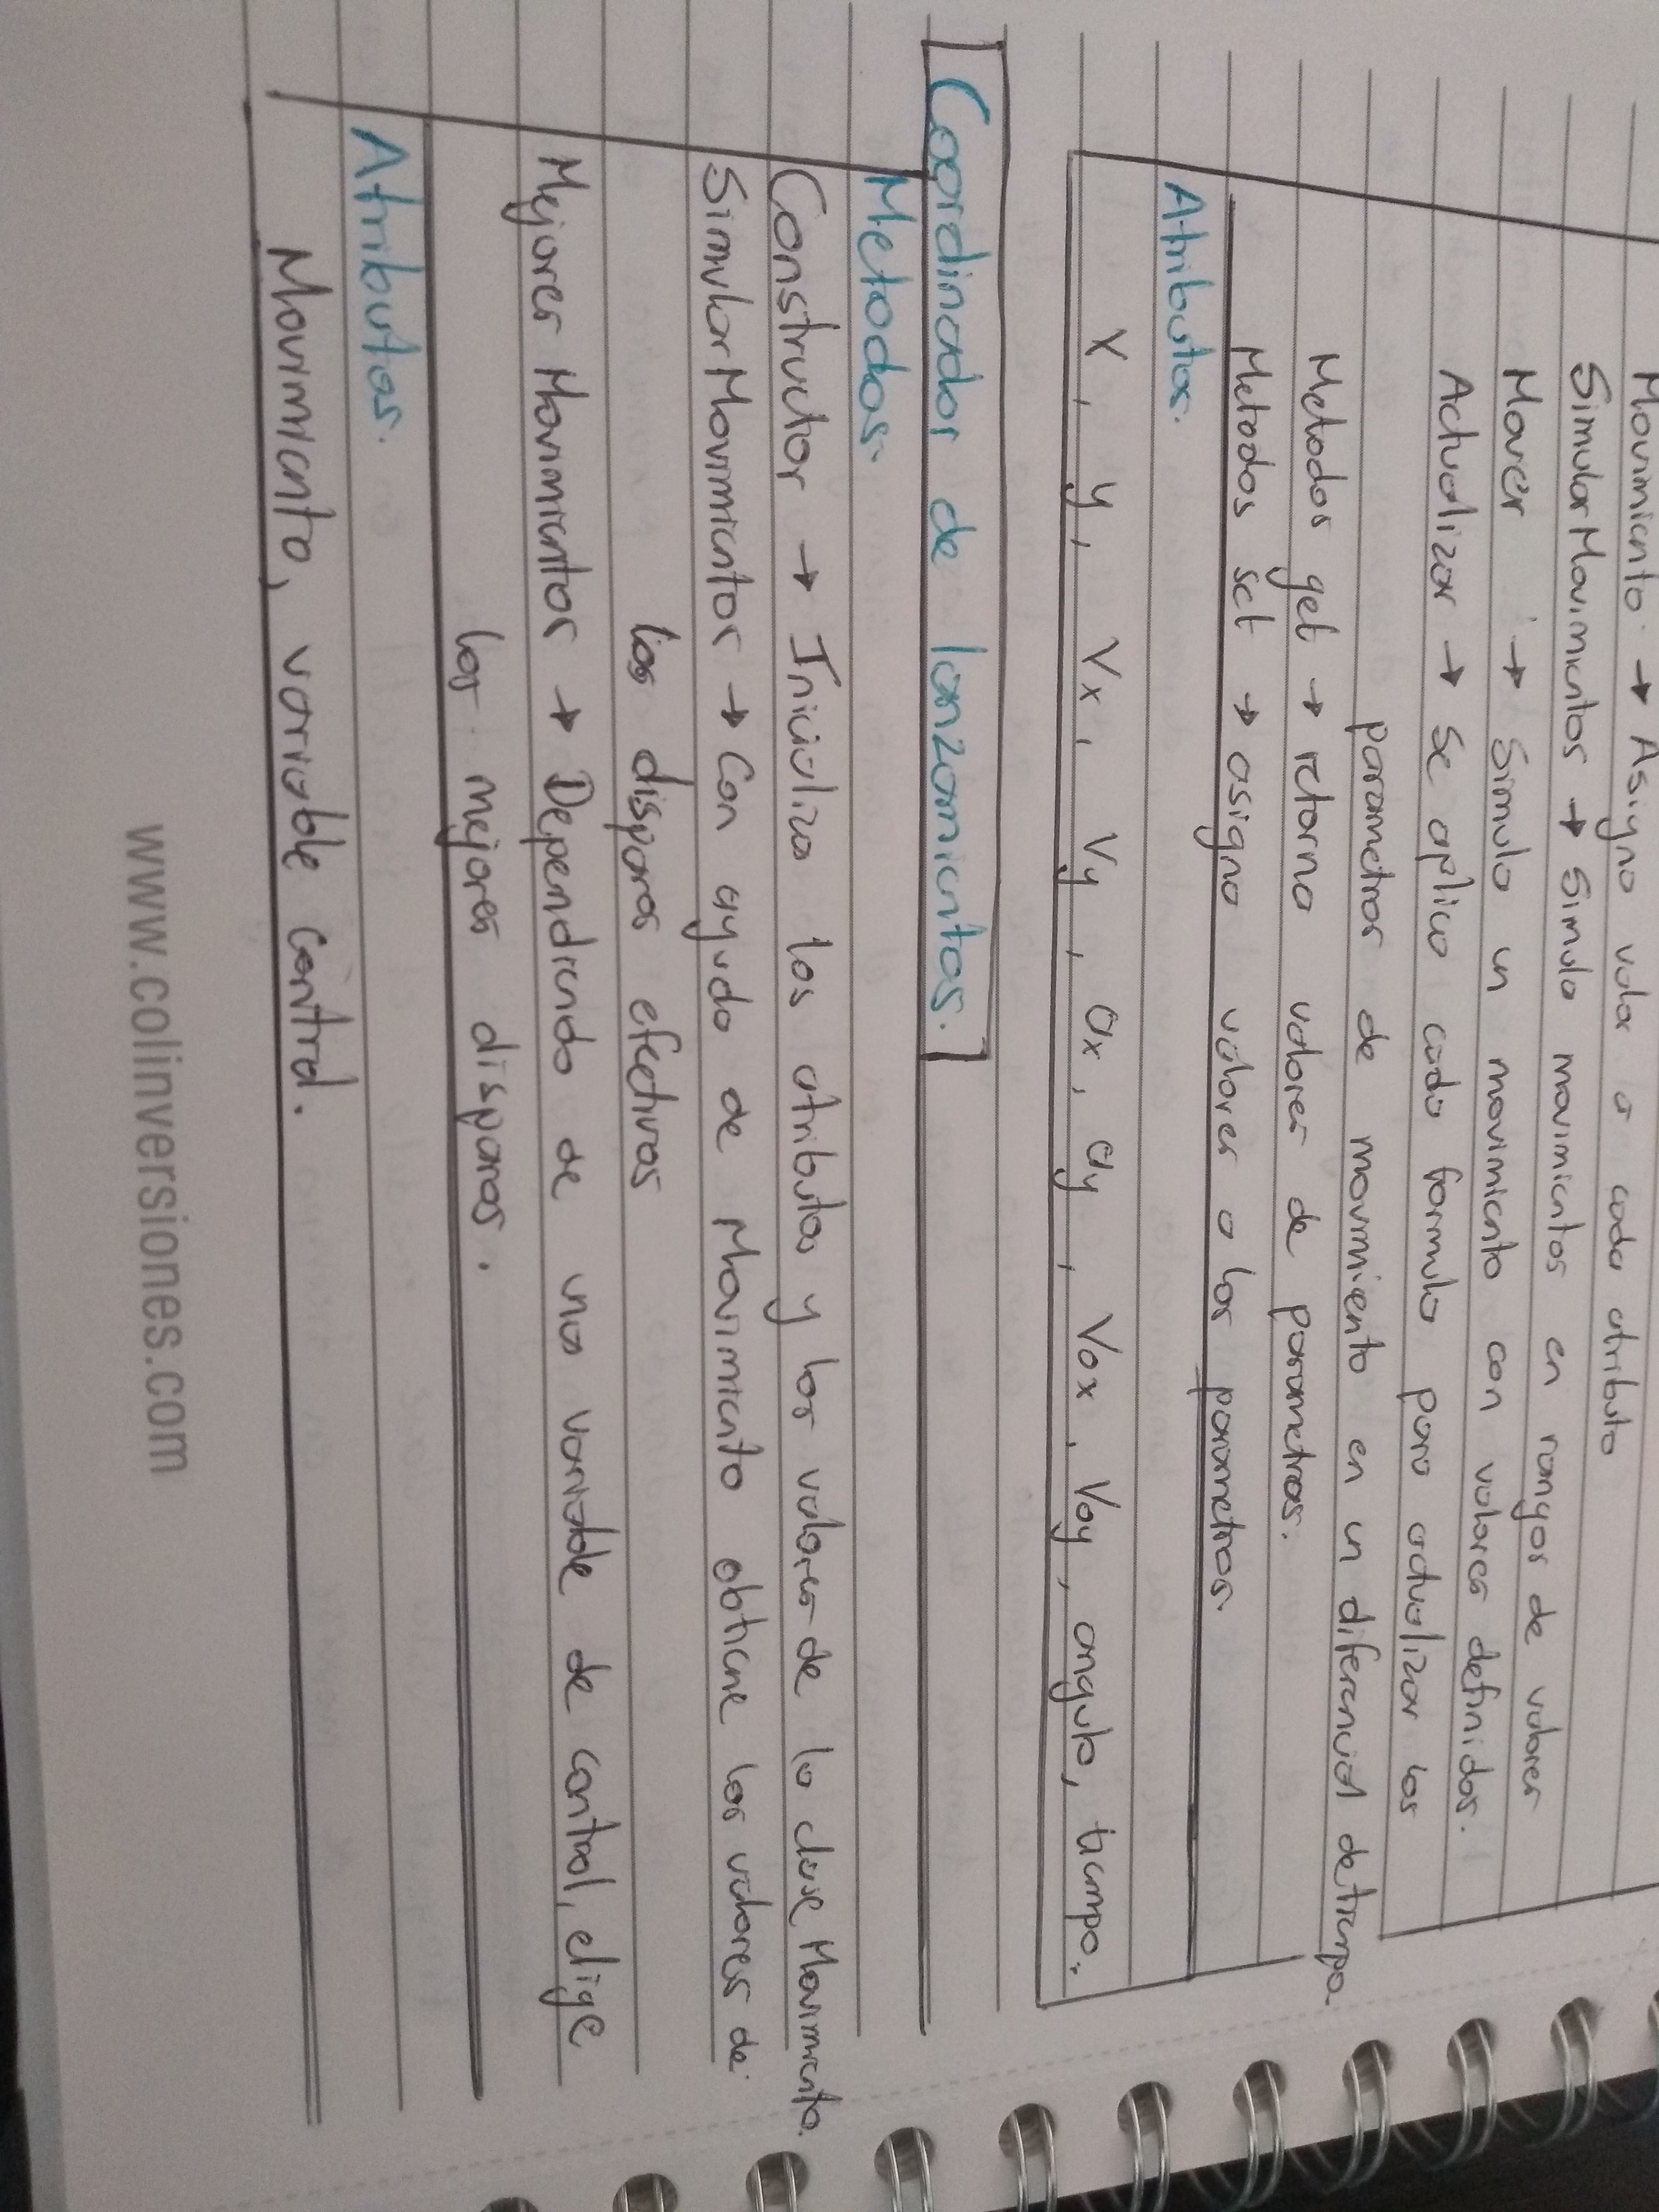 Movimiento → Asigna valor a cada atributo
SimularMovimientos → Simula movimientos en rangos de valores
Mover → Simula un movimiento con valores definidos.
Actualizar → Se aplica cada formula para actualizar los
parametros de movimiento en un diferencial de tiempo.
Metodos get → retorna valores de parametros.
Metodos set → asigna valores a los parametros.
Atributos.
X, y, Vx, Vy, ax, ay, Vox, Voy, angulo, tiempo.
Coordinador de lanzamientos.
Metodos.
Constructor → Inicializa los atributos y los valores de la clase Movimiento.
SimularMovimientos → Con ayuda de Movimiento obtiene los valores de
los disparos efectivos
Mejores Movimientos → Dependiendo de una variable de control, elige
los mejores disparos.
Atributos.
Movimiento, variable control.
www.colinversiones.com